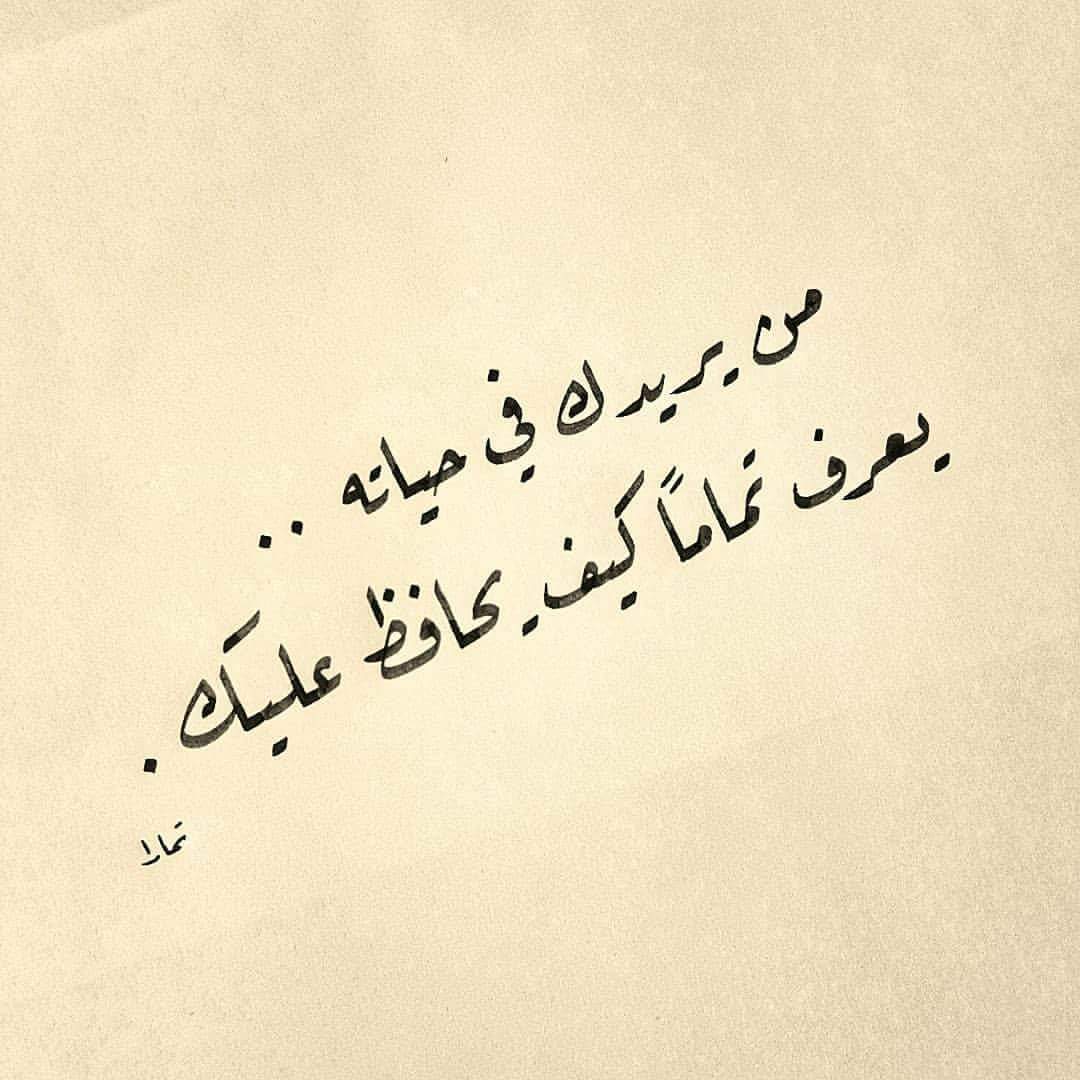 من يريدك في حياته ..
يعرف تماماً كيف يحافظ عليك .
تمارا